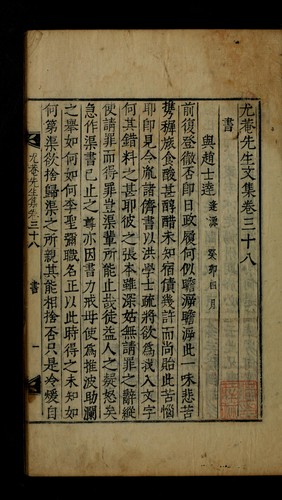 尤菴先生文集卷三十八
書
與趙士達 逢源 癸卯四月
前後登徹否卽日政履何似瞻瀜瀜此一味悲苦
携穉旅食酸甚醇醋未知宿債幾許而尙貽此苦惱
耶卽見今胤諸儕書以洪學士疏將欲爲我入文字
何其錯料之甚耶彼之張本雖深姑無請罪之辭縱
使請罪而得罪豈渠輩所能止哉徒益人之疑怒矣
急作渠書已止之尊亦因書力戒毋使爲推波助瀾
之舉如何如何李聖彌職名正以此時得之未知如
何第渠欲捨歸渠之所親其能相捨否只是冷煖自
尤菴先生文集卷三十八 書 一